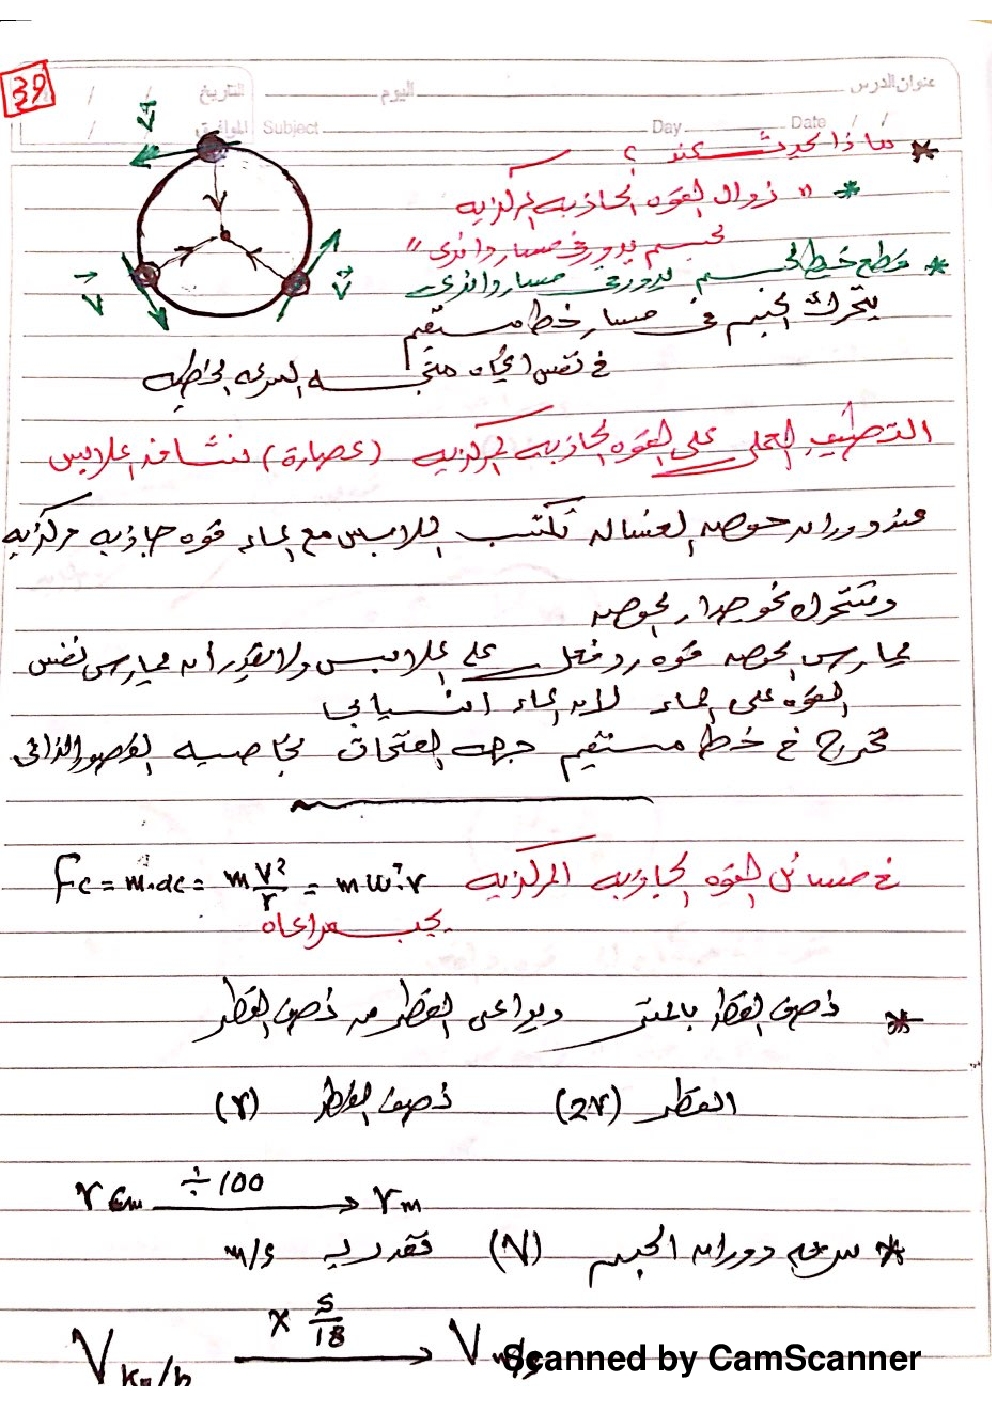 39
عنوان الدرس اليوم التاريخ / /
Subject Day Date / / الموافق / /
* ماذا يحدث عند ؟
* " زوال القوه الجاذبه المركزيه
لجسم يدور فى مسار دائرى "
* قطع خيط لجسم يدور فى مسار دائرى
يتحرك الجسم فى مسار خط مستقيم
فى نفس اتجاه متجه السرعه الخطيه
V
V
V
التطبيق العملى على القوه الجاذبه المركزيه (عصارة) نشافه الملابس
عند دوران حوض الغساله تكتسب الملابس مع الماء قوه جاذبه مركزيه
وتتحرك نحو جدار الحوض
يمارس الحوض قوه رد فعل على الملابس ولا يقدر ان يمارس نفس
القوه على الماء لان الماء انسيابى
تخرج فى خط مستقيم جهه الفتحات بخاصيه القصور الذاتى
فى مسائل القوه الجاذبه المركزيه Fc = m.ac = m V²/r = m ω².r
يجب مراعاه
* نصف القطر بالمتر ويراعى القطر من نصف القطر
القطر (2r) نصف القطر (r)
r cm ÷100 → r m
* سرعه دوران الجسم (V) تقدر بـ m/s
V Km/h × 5/18 → V m/s
Scanned by CamScanner